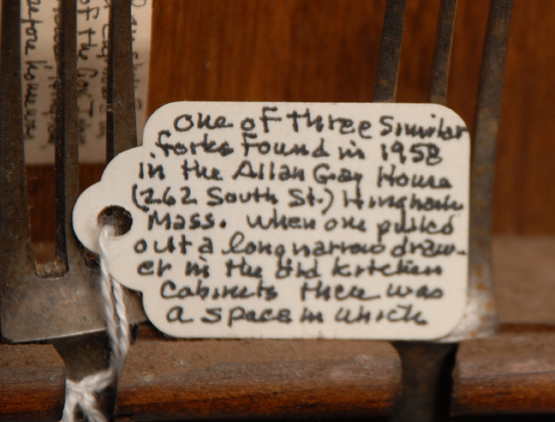 One of three similar
forks found in 1958
in the Allan Gay House
(262 South St.) Hingham
Mass. When one pulled
out a long narrow draw-
er in the old kitchen
cabinets there was
a space in which
of the
before